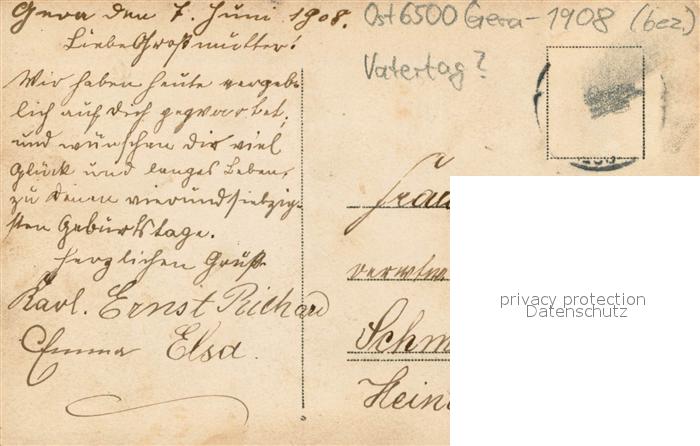 Gera den 7. Juni 1908.
Liebe Großmutter!
Wir haben heute vergeb-
lich auf dich gewartet,
und wünschen dir viel
Glück und langes Leben,
zu deinem vierundsiebzig-
sten Geburtstage.
Herzlichen Gruß
Karl. Ernst Richard
Emma Elsa.
Ost 6500 Gera - 1908 (bez.)
Vatertag?
Frau
verwtw
Schm
Hein
privacy protection
Datenschutz